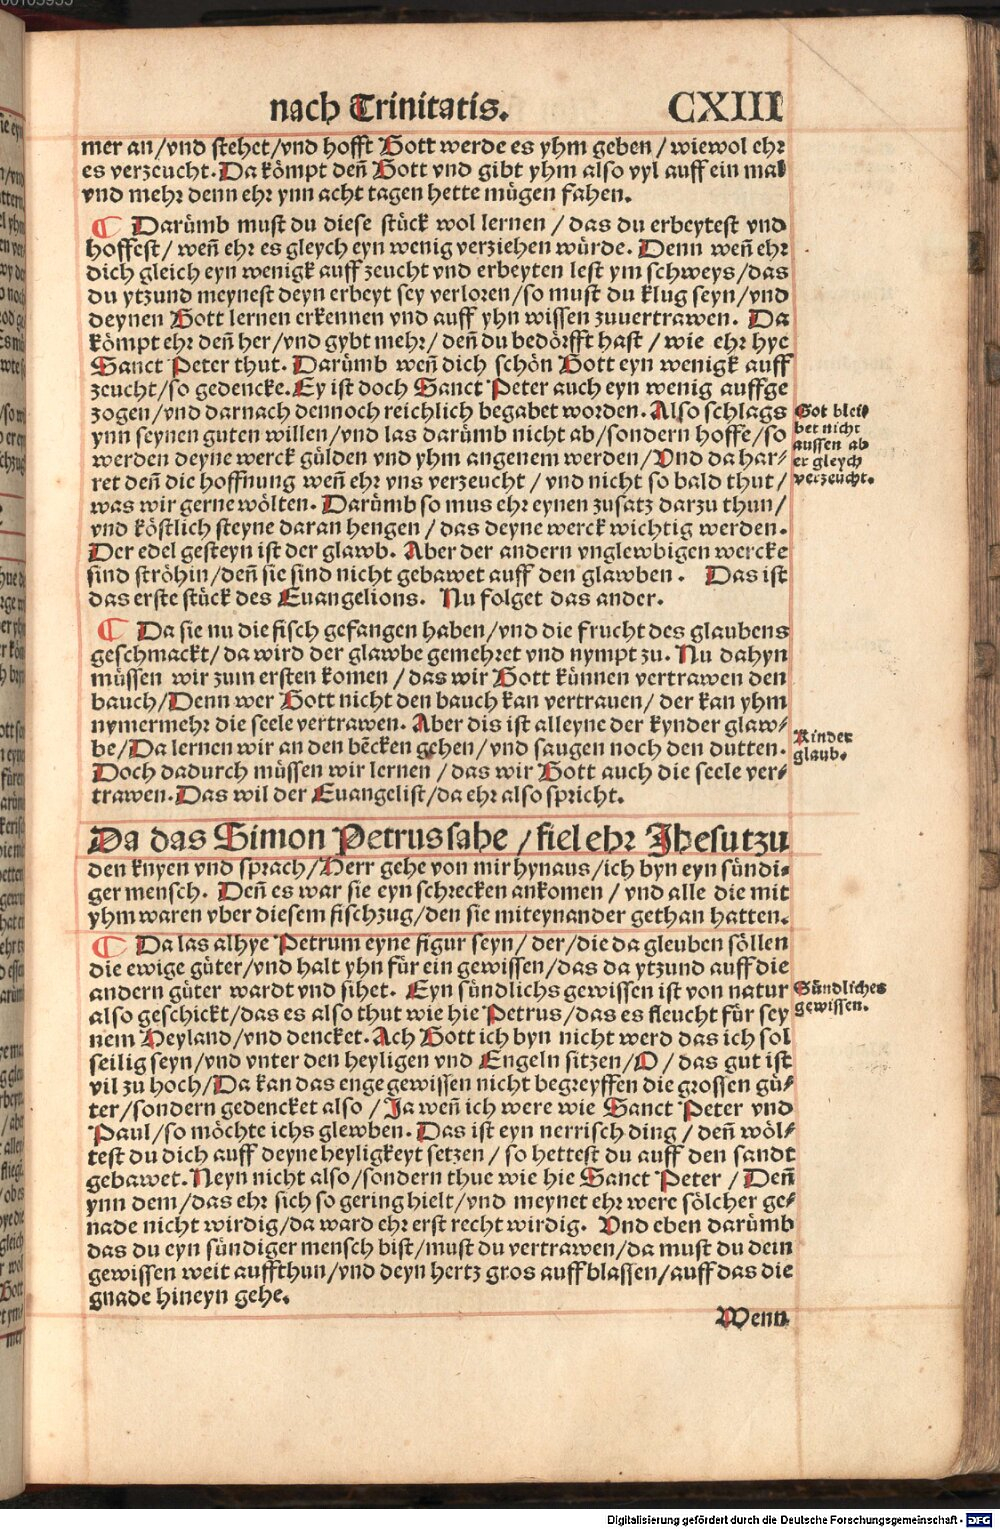 nach Trinitatis. CXIII
mer an/vnd stehet/vnd hofft Gott werde es yhm geben/wiewol ehr
es verzeucht. Da kömpt deñ Gott vnd gibt yhm also vyl auff ein mal
vnd mehr denn ehr ynn acht tagen hette mügen fahen.
¶ Darümb must du diese stück wol lernen/das du erbeytest vnd
hoffest/weñ ehr es gleych eyn wenig verziehen würde. Denn weñ ehr
dich gleich eyn wenigk auff zeucht vnd erbeyten lest ym schweys/das
du ytzund meynest deyn erbeyt sey verloren/so must du klug seyn/vnd
deynen Gott lernen erkennen vnd auff yhn wissen zuvertrawen. Da
kömpt ehr deñ her/vnd gybt mehr/deñ du bedörfft hast/wie ehr hye
Sanct Peter thut. Darümb weñ dich schön Gott eyn wenigk auff
zeucht/so gedencke. Ey ist doch Sanct Peter auch eyn wenig auffge
zogen/vnd darnach dennoch reichlich begabet worden. Also schlags
ynn seynen guten willen/vnd las darümb nicht ab/sondern hoffe/so
werden deyne werck gülden vnd yhm angenem werden/Vnd da har/
ret deñ die hoffnung weñ ehr vns verzeucht/vnd nicht so bald thut/
was wir gerne wölten. Darümb so mus ehr eynen zusatz darzu thun/
vnd köstlich steyne daran hengen/das deyne werck wichtig werden.
Der edel gesteyn ist der glawb. Aber der andern vnglewbigen wercke
sind ströhin/deñ sie sind nicht gebawet auff den glawben. Das ist
das erste stück des Euangelions. Nu folget das ander.
Got blei/
bet nicht
aussen ab
er gleych
verzeücht.
¶ Da sie nu die fisch gefangen haben/vnd die frucht des glaubens
geschmackt/da wird der glawbe gemehret vnd nympt zu. Nu dahyn
müssen wir zum ersten komen/das wir Gott künnen vertrawen den
bauch/Denn wer Gott nicht den bauch kan vertrauen/der kan yhm
nymermehr die seele vertrawen. Aber dis ist alleyne der kynder glaw/
be/Da lernen wir an den běcken gehen/vnd saugen noch den dutten.
Doch dadurch müssen wir lernen/das wir Gott auch die seele ver/
trawen. Das wil der Euangelist/da ehr also spricht.
Kinder
glaub.
Da das Simon Petrus sahe/fiel ehr Jhesu tzu
den knyen vnd sprach/Herr gehe von mir hynaus/ich byn eyn sündi/
ger mensch. Deñ es war sie eyn schrecken ankomen/vnd alle die mit
yhm waren vber diesem fischzug/den sie miteynander gethan hatten.
¶ Da las alhye Petrum eyne figur seyn/der/die da gleuben söllen
die ewige güter/vnd halt yhn für ein gewissen/das da ytzund auff die
andern güter wardt vnd sihet. Eyn sündlichs gewissen ist von natur
also geschickt/das es also thut wie hie Petrus/das es fleucht für sey
nem Heyland/vnd dencket. Ach Gott ich byn nicht werd das ich sol
seilig seyn/vnd vnter den heyligen vnd Engeln sitzen/O/das gut ist
vil zu hoch/Da kan das enge gewissen nicht begreyffen die grossen gü/
ter/sondern gedencket also/Ja weñ ich were wie Sanct Peter vnd
Paul/so möchte ichs glewben. Das ist eyn nerrisch ding/deñ wöl/
test du dich auff deyne heyligkeyt setzen/so hettest du auff den sandt
gebawet. Neyn nicht also/sondern thue wie hie Sanct Peter/Deñ
ynn dem/das ehr sich so gering hielt/vnd meynet ehr were sölcher ge/
nade nicht wirdig/da ward ehr erst recht wirdig. Vnd eben darümb
das du eyn sündiger mensch bist/must du vertrawen/da must du dein
gewissen weit auffthun/vnd deyn hertz gros auffblassen/auff das die
gnade hineyn gehe.
Sündliches
gewissen.
Wenn
Digitalisierung gefördert durch die Deutsche Forschungsgemeinschaft - DFG